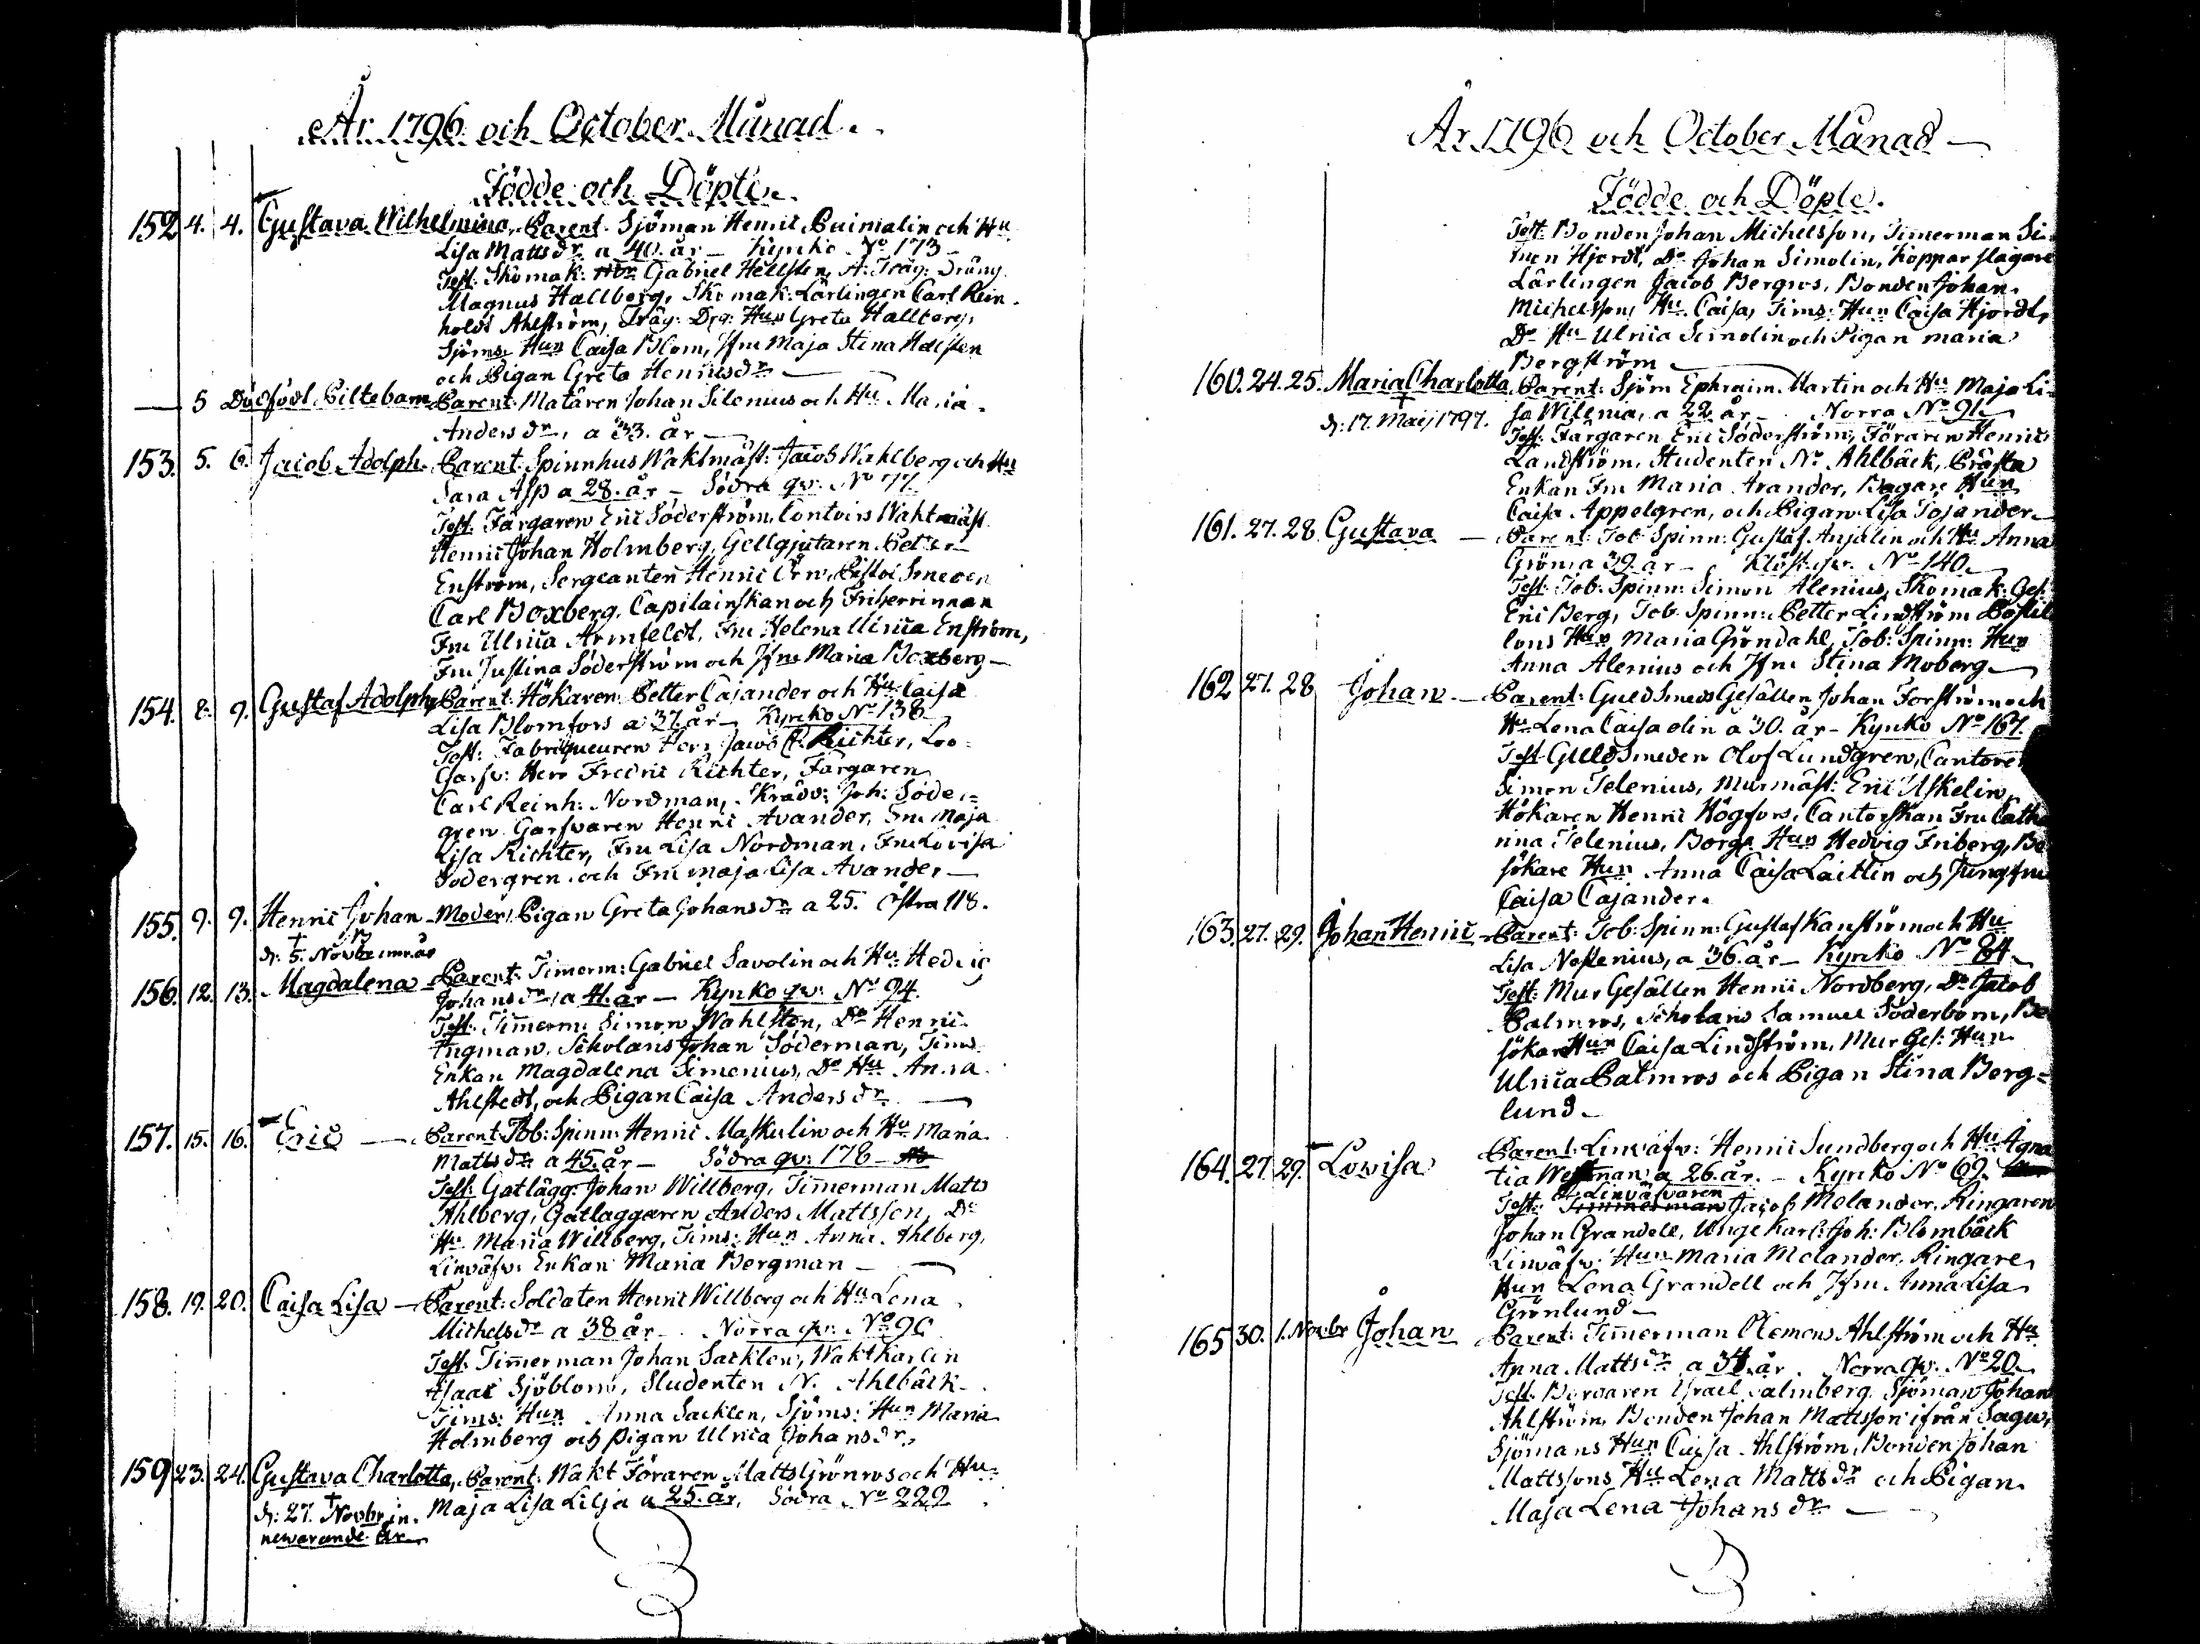 År 1796 och October Månad.
Födde och Döpte.
152 4. 4. Gustava Wilhelmina, Parent. Sjöman Henric Buimalin och Hu
Lisa Mattsdr a 40. år – Kyrko No 173 –
Test: Skomak: Gabriel Hellsten, A: Träg: Dräng
Magnus Hallberg, Skomak: Lärlingen Carl Rein-
hold Ahlström, Träg: Drg: Hun Greta Hallberg,
Sjöms: Hun Caisa Blom, Jfru Maja Stina Hellsten
och Pigan Greta Henricsdr –
— 5 Dödfödt Piltebarn Parent. Målaren Johan Silenius och Hu Maria
Andersdr, a 33. år –
153. 5. 6. Jacob Adolph. Parent: Spinnhus Waktmäst: Jacob Wahlberg och Hu
Sara Asp a 28. år – Södra qv: No 77
Test: Färgaren Eric Söderström, Contoirs Waktmäst.
Henric Johan Holmberg, Gellgjutaren Petter
Enström, Sergeanten Henric Örn, Pistol Smeden
Carl Boxberg, Capitainskan och Friherrinnan
Fru Ulrica Armfeldt, Fru Helena Ulrica Enström,
Fru Justina Söderström och Jfru Maria Boxberg –
154. 8. 9. Gustaf Adolph, Parent: Hökaren Petter Cajander och Hu Caisa
Lisa Blomfors a 37. år – Kyrko No 138
Test: Fabriqueuren Herr Jacob C. Richter, Loo-
Garfv: Herr Fredric Richter, Färgaren
Carl Reinh: Nordman, Skrädd: Joh: Söder-
gren Garfvaren Henric Avander, Fru Maja
Lisa Richter, Fru Lisa Nordman, Fru Lovisa
Södergren och Fru Maja Lisa Avander –
155. 9. 9. Henric Johan – Moder, Pigan Greta Johansdr a 25. Östra 118.
d: 5. Novbr
156. 12. 13. Magdalena – Parent: Timerm: Gabriel Savolin och Hu Hedvig
Johansdr, a 41. år – Kyrko qv: No 94.
Test: Timerm: Simon Wahlsten, Do Henric
Ingman, Scholaris Johan Söderman, Tims
Enkan Magdalena Simenius, Do Hu Anna
Ahlstedt, och Pigan Caisa Andersdr –
157. 15. 16. Eric – Parent: Tob: Spinn: Henric Maskulin och Hu Maria
Mattsdr a 45. år – Södra qv: 178 –
Test: Gatlägg: Johan Willberg, Timerman Matts
Ahlberg, Gatläggaren Anders Mattsson, Do
Hu Maria Willberg, Tims: Hun Anna Ahlberg,
Linväfv: Enkan Maria Bergman –
158. 19. 20. Caisa Lisa – Parent: Soldaten Henric Willberg och Hu Lena
Michelsdr a 38 år – Norra qv: No 90
Test: Timerman Johan Sacklen, Wakt Karlen
Isaac Sjöblom, Studenten N. Ahlbäck
Tims: Hun Anna Sacklen, Sjöms: Hun Maria
Holmberg och Pigan Ulrica Johansdr,
159 23. 24. Gustava Charlotta, Parent: Wakt Föraren Matts Grönros och Hu
d: 27. Novbr in- Maja Lisa Lilja a 25. år, Södra No 222
newarande år
År 1796 och October Månad –
Födde och Döpte.
Test: Bonden Johan Michelsson, Timerman Si-
mon Hjordt, Do Johan Simolin, Kopparslagare
Lärlingen Jacob Bergros, Bonden Johan
Michelsson, Hu Caisa, Tims: Hun Caisa Hjordt,
Do Hu Ulrica Simolin och Pigan Maria
Bergström –
160. 24. 25. Maria Charlotta, Parent: Sjöm Ephraim Martin och Hu Maja Li-
d: 17. Maij 1797. sa Wilenia, a 22 år – Norra No 91
Test: Färgaren Eric Söderström, Föraren Henric
Landström, Studenten N. Ahlbäck, Prosta
Enkan Fru Maria Avander, Bagare Hun
Caisa Appelgren, och Pigan Lisa Tojander –
161. 27. 28. Gustava – Parent: Tob: Spinn: Gustaf Anjalin och Hu Anna
Grön a 39. år – Klöst. qv. No 140.
Test: Tob: Spinn: Simon Alenius, Skomak: Ges:
Eric Berg, Tob: Spinn: Petter Lindström Postil-
lons Hun Maria Gröndahl, Tob: Spinn: Hun
Anna Alenius och Jfru Stina Moberg –
162 27. 28 Johan – Parent: Guldsmeds Gesällen Johan Forström och
Hu Lena Caisa Olin a 30. år – Kyrko No 167.
Test: Guldsmeden Olof Lundgren, Cantoren
Simon Telenius, Murmäst: Eric Uskelin,
Hökaren Henric Högfors, Cantorskan Fru Catha
rina Telenius, Borg: Hun Hedvig Friberg, Be
sökare Hun Anna Caisa Laitlin och Jungfru
Caisa Cajander.
163. 27. 29. Johan Henric – Parent: Tob: Spinn: Gustaf Kanström och Hu
Lisa Nostenius, a 36. år – Kyrko No 84.
Test: Mur Gesällen Henric Nordberg, Do Jacob
Palmros, Scholaris Samuel Söderbom, Be
sökar Hun Caisa Lindström, Mur Ges: Hun
Ulrica Palmros och Pigan Stina Berg-
lund –
164. 27. 29. Lovisa Parent: Linväfv: Henric Sundberg och Hu Agna
tia Westman, a 26. år. – Kyrko No 69.
Linväfvaren
Test: Timmerman Jacob Melander, Ringaren
Johan Grandell, Unge Karl: Joh: Blombäck
Linväfv: Hun Maria Melander, Ringare
Hun Lena Grandell och Jfru Anna Lisa
Grönlund –
165 30. 1. Novbr Johan Parent: Timerman Clemens Ahlström och Hu
Anna Mattsdr a 34. år Norra qv: No 20
Test: Israel Palmberg, Sjöman Johan
Ahlström, Bonden Johan Mattsson ifrån Sagu,
Sjömans Hun Caisa Ahlström, Bonden Johan
Mattssons Hu Lena Mattsdr och Pigan
Maja Lena Johansdr –